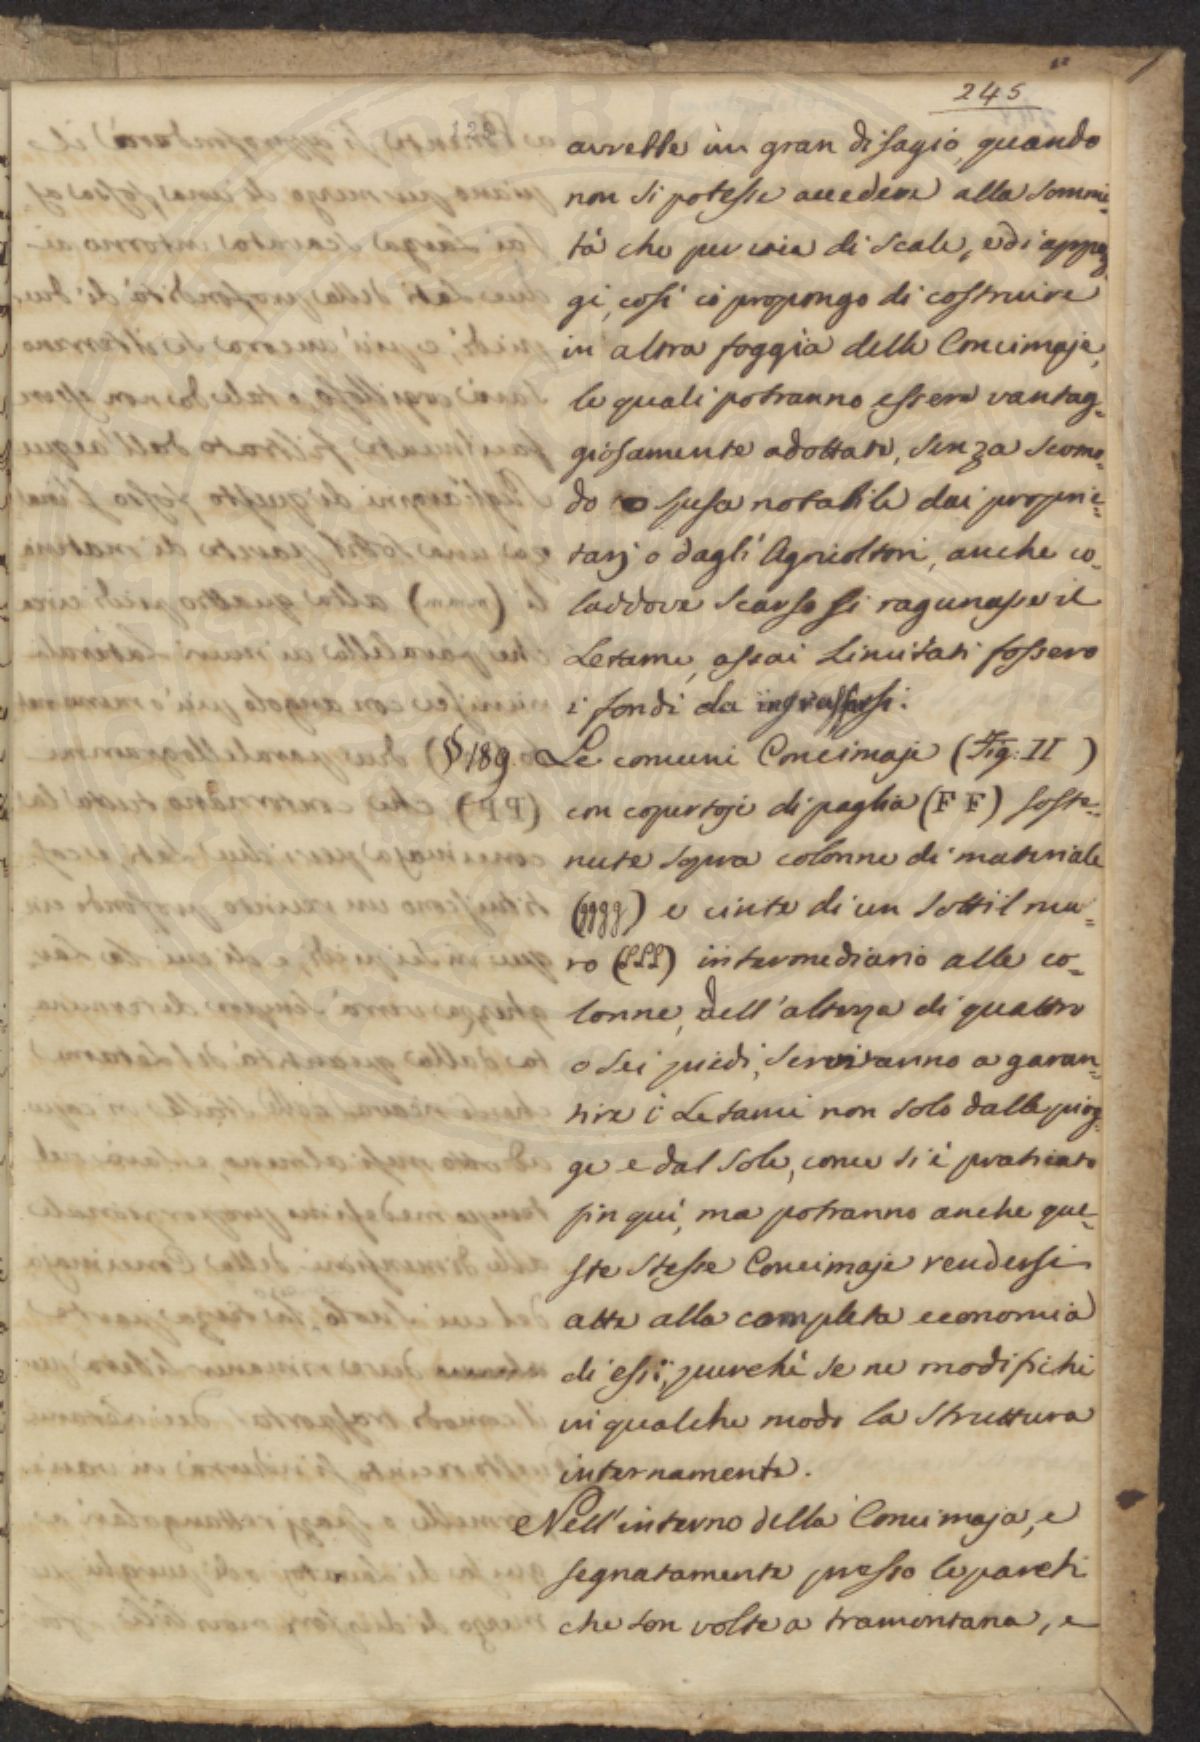 245
avrebbe un gran disagio, quando
non si potesse accedere alla sommi-
tà che per via di scale, e di appog-
gi, così io propongo di costruire
in altra foggia delle Concimaje,
le quali potranno essere vantag-
giosamente adottate, senza scomo-
do o spesa notabile dai proprie-
tarj o dagli Agricoltori, anche co-
laddove scarso si ragunasse il
Letame, assai limitati fossero
i fondi da ingrassarsi.
§ 189. Le comuni Concimaje (Fig: II )
con copertoje di paglia (F F) soste-
nute sopra colonne di materiale
(gggg) e cinte di un sottil mu-
ro (lll) intermediario alle co-
lonne, dell'altezza di quattro
o sei piedi, serviranno a garan-
tire i Letami non solo dalle piog-
ge e dal sole, come si è praticato
fin quì, ma potranno anche que-
ste stesse Concimaje rendersi
atte alla completa economia
di essi, purchè se ne modifichi
in qualche modo la struttura
internamente.
Nell'interno della Concimaja, e
segnatamente presso le pareti
che son volte a tramontana, e